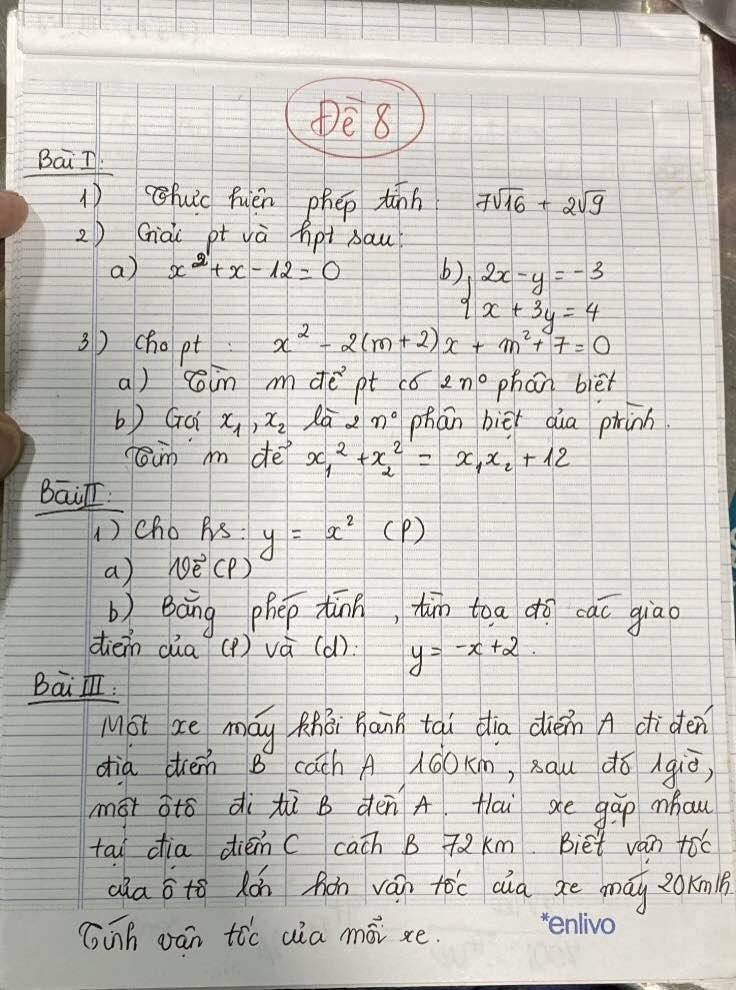 Đề 8
Bài I:
1) Thực hiện phép tính: 7√16 + 2√9
2) Giải pt và hpt sau:
a) x² + x - 12 = 0 b) { 2x - y = -3
x + 3y = 4
3) Cho pt: x² - 2(m+2)x + m² + 7 = 0
a) Tìm m để pt có 2 n° phân biệt
b) Gọi x₁, x₂ là 2 n° phân biệt của ptrình.
Tìm m để x₁² + x₂² = x₁x₂ + 12
Bài II:
1) Cho hs: y = x² (P)
a) Vẽ (P)
b) Bằng phép tính, tìm tọa độ các giao
điểm của (P) và (d): y = -x + 2.
Bài III:
Một xe máy khởi hành tại địa điểm A đi đến
địa điểm B cách A 160 km, sau đó 1 giờ,
một ôtô đi từ B đến A. Hai xe gặp nhau
tại địa điểm C cách B 72 km. Biết vận tốc
của ôtô lớn hơn vận tốc của xe máy 20 km/h
Tính vận tốc của mỗi xe.
*enlivo